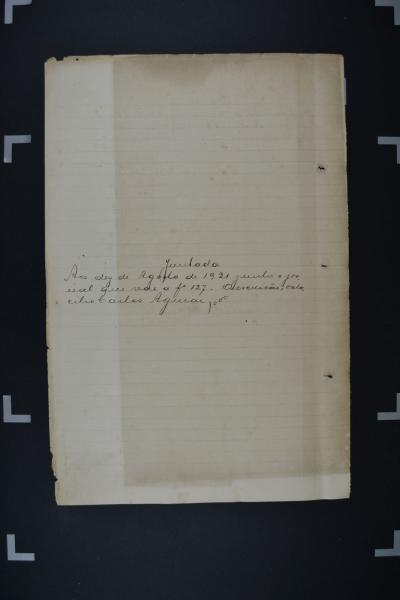 Juntada
Aos dez de Agosto de 1921 junto o jor
nal que vae a fs 127. O escrivão,
Carlos Aguiar